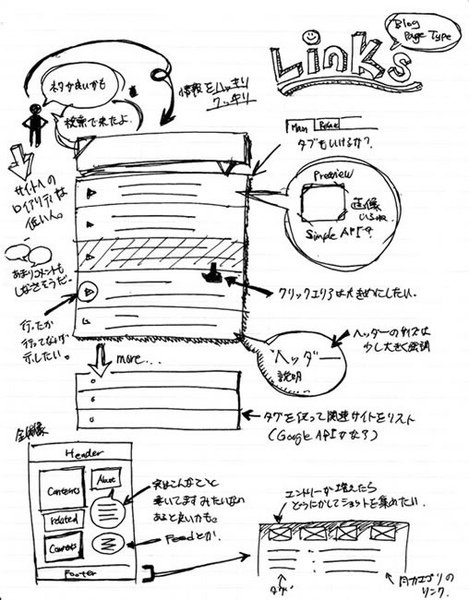 Links
Blog
Page Type
ネタ良いかも
検索で来たよ。
情報をハッキリ
クッキリ
Main
タブもいけるか？
Preview
画像
いるね。
Simple API？
サイトへの
ロイアリティは
低い人。
あまりコメントも
しなさそうだ。
クリックエリアは大きめにしたい。
行ったか
行ってないか
示したい。
ヘッダーのサイズは
少し大きく強調
ヘッダー
説明
more...
タグを使って関連サイトをリスト
(Google APIかな？)
全体像
Header
Contents
About
related
Comments
Footer
実はこんなこと
書いてますみたいなの
あると良いかも。
Feedとか。
エントリーが増えたら
どうにかしてショットを集めたい。
タグ
月カテゴリの
リンク。